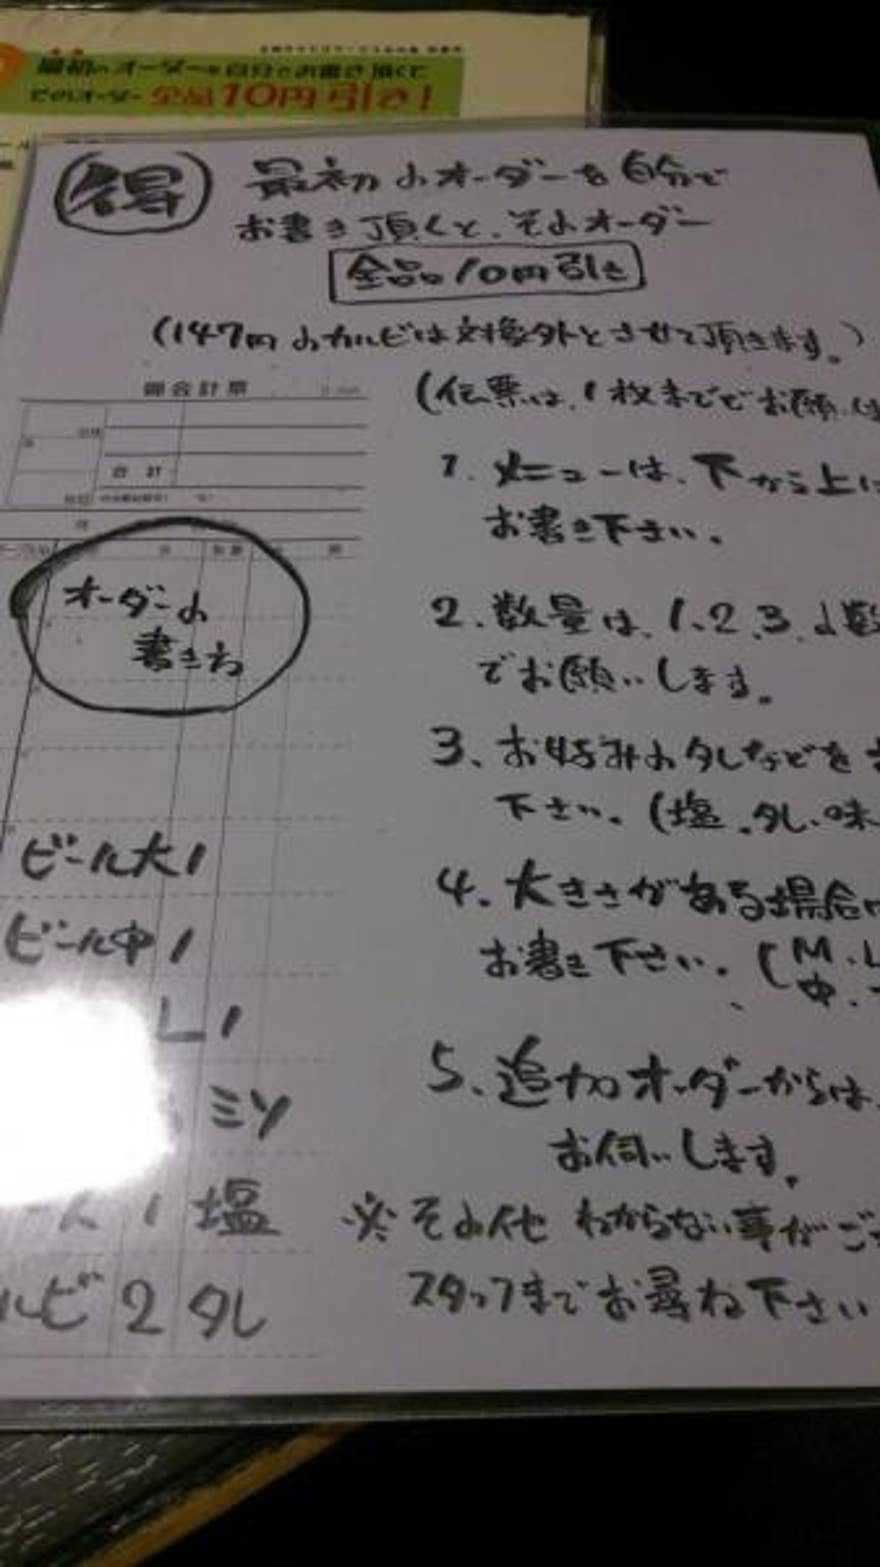 最初のオーダーを自分でお書き頂くと
そのオーダー全品10円引き!
得
最初のオーダーを自分で
お書き頂くと、そのオーダー
全品10円引き
(147円のカルビは対象外とさせて頂きます。)
御会計票
(伝票は、1枚まででお願い
合計
1. メニューは、下から上に
お書き下さい。
オーダーの
書き方
2. 数量は、1、2、3、の数
でお願いします。
3、お好みのタレなどを
下さい。(塩、タレ、味
ビール大1
4、大きさがある場合
ビール中1
お書き下さい。(M、L
中、
L1
5、追加オーダーからは、
お伺いします。
ミソ
1 塩
※その他わからない事がご
ルビ 2 タレ
スタッフまでお尋ね下さい